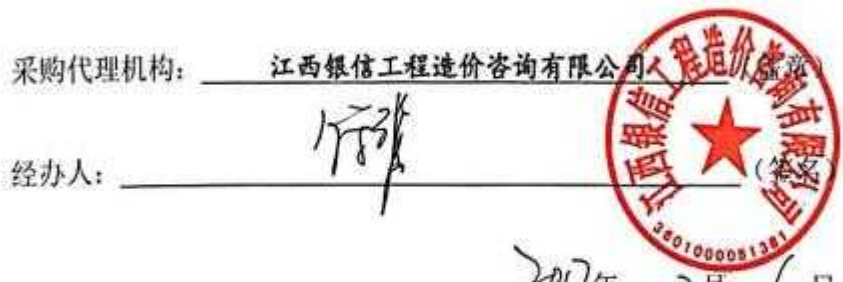 采购代理机构： 江西银信工程造价咨询有限公司 （盖章）
江西银信工程造价咨询有限公司
3601000051381
经办人： （签名）
2017年 月 6 日